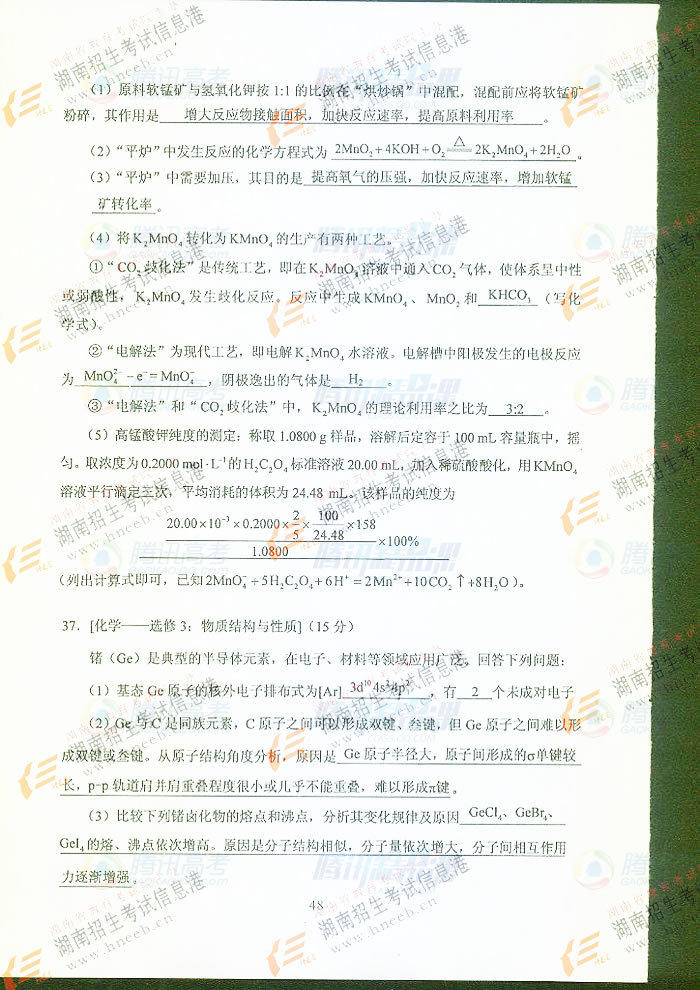 (1) 原料软锰矿与氢氧化钾按 1:1 的比例在“烘炒锅”中混配，混配前应将软锰矿
粉碎，其作用是 增大反应物接触面积，加快反应速率，提高原料利用率 。
(2)“平炉”中发生反应的化学方程式为 2MnO₂+4KOH+O₂ ==△== 2K₂MnO₄+2H₂O 。
(3)“平炉”中需要加压，其目的是 提高氧气的压强，加快反应速率，增加软锰
矿转化率 。
(4) 将 K₂MnO₄ 转化为 KMnO₄ 的生产有两种工艺。
①“CO₂ 歧化法”是传统工艺，即在 K₂MnO₄ 溶液中通入 CO₂ 气体，使体系呈中性
或弱酸性，K₂MnO₄ 发生歧化反应。反应中生成 KMnO₄、MnO₂ 和 KHCO₃ (写化
学式)。
②“电解法”为现代工艺，即电解 K₂MnO₄ 水溶液。电解槽中阳极发生的电极反应
为 MnO₄²⁻ − e⁻ = MnO₄⁻ ，阴极逸出的气体是 H₂ 。
③“电解法”和“CO₂ 歧化法”中，K₂MnO₄ 的理论利用率之比为 3:2 。
(5) 高锰酸钾纯度的测定：称取 1.0800 g 样品，溶解后定容于 100 mL 容量瓶中，摇
匀。取浓度为 0.2000 mol·L⁻¹ 的 H₂C₂O₄ 标准溶液 20.00 mL，加入稀硫酸酸化，用 KMnO₄
溶液平行滴定三次，平均消耗的体积为 24.48 mL。该样品的纯度为
20.00×10⁻³×0.2000×2/5×100/24.48×158
1.0800 ×100%
(列出计算式即可，已知 2MnO₄⁻+5H₂C₂O₄+6H⁺=2Mn²⁺+10CO₂↑+8H₂O)。
37．[化学——选修 3：物质结构与性质]（15 分）
锗（Ge）是典型的半导体元素，在电子、材料等领域应用广泛。回答下列问题：
(1) 基态 Ge 原子的核外电子排布式为[Ar] 3d¹⁰4s²4p² ，有 2 个未成对电子
(2) Ge 与 C 是同族元素，C 原子之间可以形成双键、叁键，但 Ge 原子之间难以形
成双键或叁键。从原子结构角度分析，原因是 Ge 原子半径大，原子间形成的σ单键较
长，p-p 轨道肩并肩重叠程度很小或几乎不能重叠，难以形成π键 。
(3) 比较下列锗卤化物的熔点和沸点，分析其变化规律及原因 GeCl₄、GeBr₄、
GeI₄ 的熔、沸点依次增高。原因是分子结构相似，分子量依次增大，分子间相互作用
力逐渐增强 。
48
湖南招生考试信息港
www.hneeb.cn